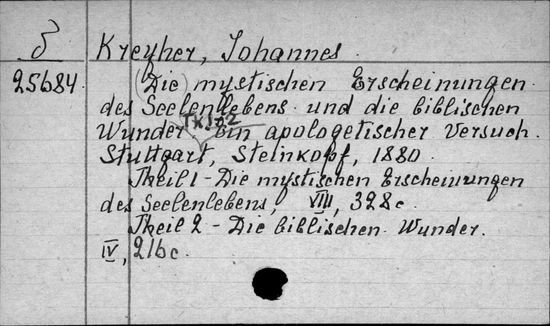 δ Kreyher, Johannes.
25684. (Die) mystischen Erscheinungen
des Seelenlebens und die biblischen
Th 1-2
Wunder. Ein apologetischer Versuch.
Stuttgart, Steinkopf, 1880.
Theil 1 - Die mystischen Erscheinungen
des Seelenlebens, VIII, 328 c.
Theil 2 - Die biblischen Wunder.
IV, 216 c.